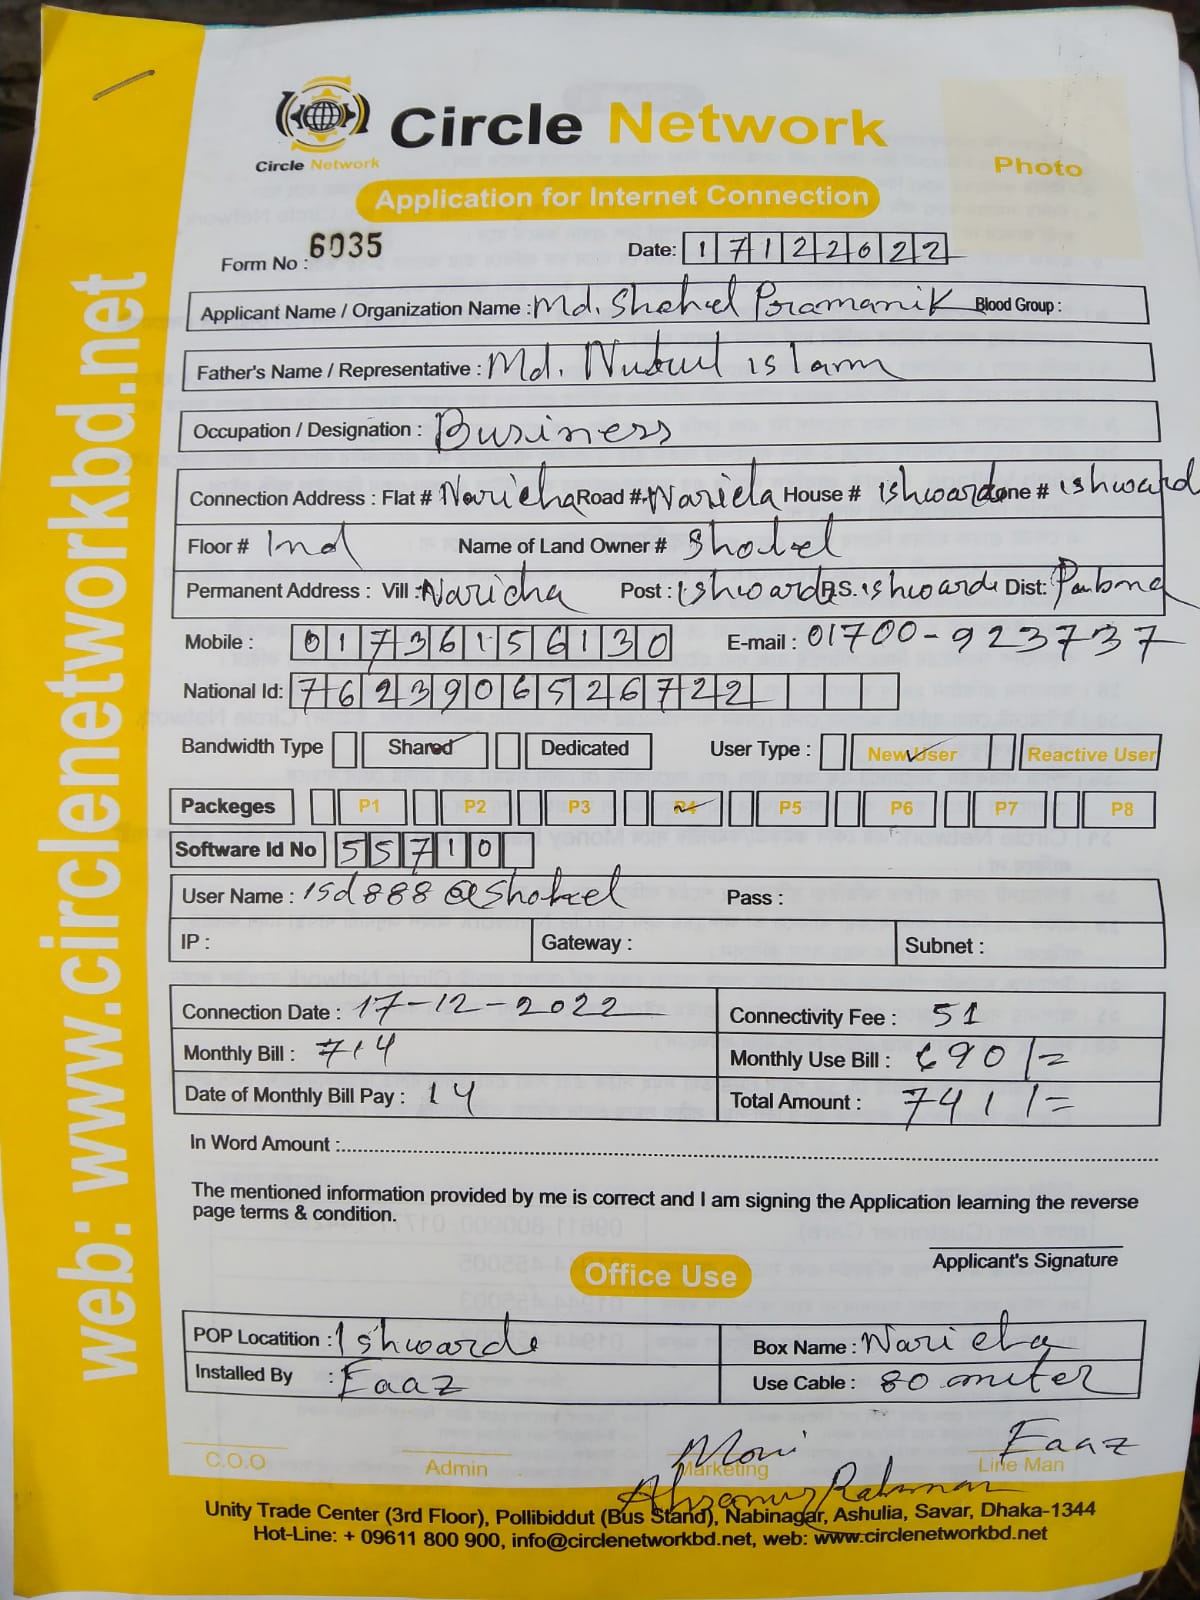 web: www.circlenetworkbd.net
Circle Network
Circle Network
Photo
Application for Internet Connection
Form No : 6035 Date: 17122022
Applicant Name / Organization Name : Md. Shohel Pramanik Blood Group :
Father's Name / Representative : Md. Nurul islam
Occupation / Designation : Business
Connection Address : Flat # Naricha Road # Naricha House # ishwardi Zone # ishwardi
Floor # Ind Name of Land Owner # Shohel
Permanent Address : Vill : Naricha Post : ishwardi P.S. ishwardi Dist: Pabna
Mobile : 01736156130 E-mail : 01700-923737
National Id: 7623906526722
Bandwidth Type Shared Dedicated User Type : New User Reactive User
Packeges P1 P2 P3 P4 P5 P6 P7 P8
Software Id No 55710
User Name : isd888@shohel Pass :
IP : Gateway : Subnet :
Connection Date : 17-12-2022 Connectivity Fee : 51
Monthly Bill : 714 Monthly Use Bill : 690/=
Date of Monthly Bill Pay : 14 Total Amount : 741/=
In Word Amount :
The mentioned information provided by me is correct and I am signing the Application learning the reverse
page terms & condition.
Applicant's Signature
Office Use
POP Locatition : Ishwardi Box Name : Naricha
Installed By : Faaz Use Cable : 80 miter
Moni Faaz
C.O.O Admin Marketing Line Man
Rahman
Unity Trade Center (3rd Floor), Pollibiddut (Bus Stand), Nabinagar, Ashulia, Savar, Dhaka-1344
Hot-Line: + 09611 800 900, info@circlenetworkbd.net, web: www.circlenetworkbd.net